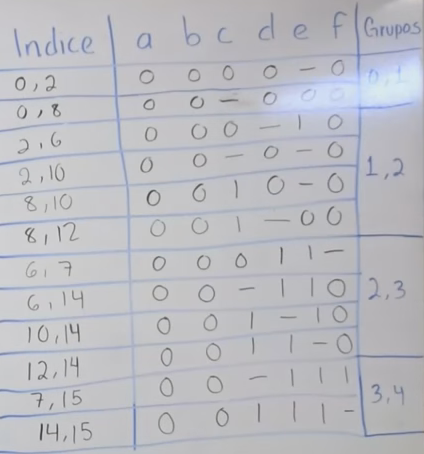 Indice a b c d e f Grupos
0,2 0 0 0 0 - 0 0,1
0,8 0 0 - 0 0 0
2,6 0 0 0 - 1 0
2,10 0 0 - 0 - 0 1,2
8,10 0 0 1 0 - 0
8,12 0 0 1 - 0 0
6,7 0 0 0 1 1 -
6,14 0 0 - 1 1 0 2,3
10,14 0 0 1 - 1 0
12,14 0 0 1 1 - 0
7,15 0 0 - 1 1 1 3,4
14,15 0 0 1 1 1 -